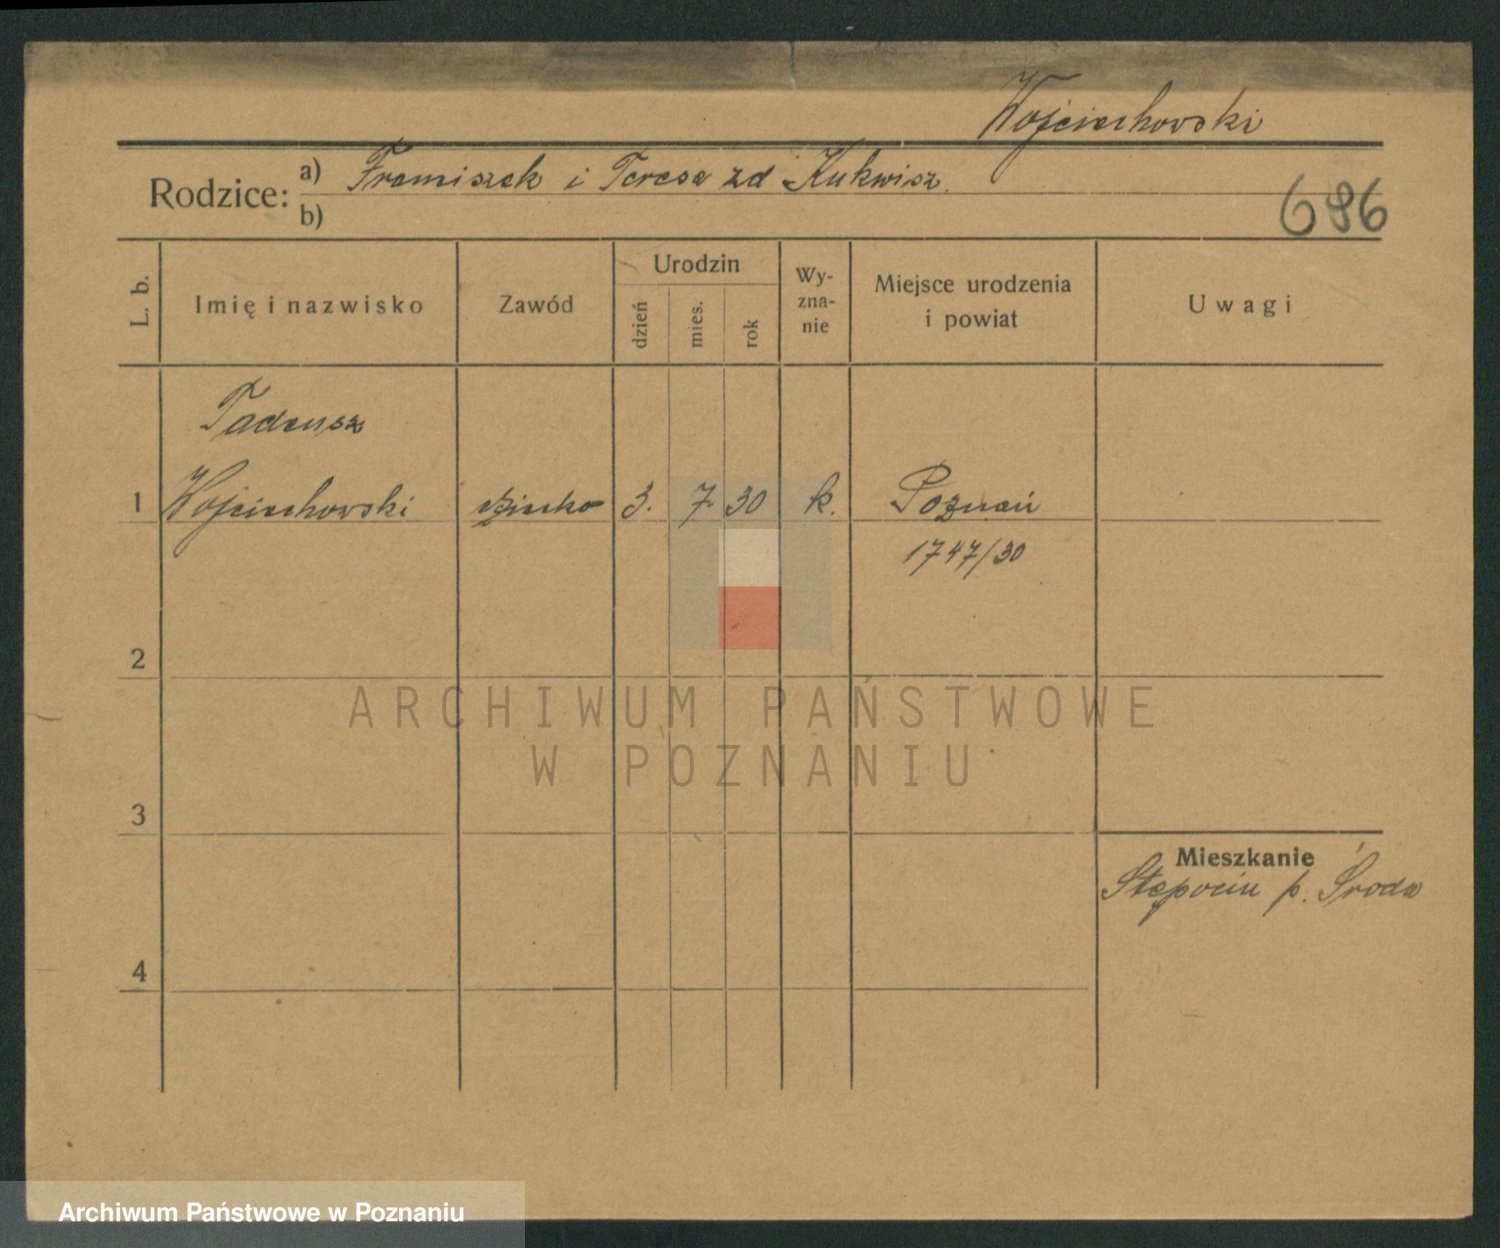 Wojciechowski
Rodzice:
a) Franciszek i Teresa zd Kukwisz.
b)
696
L. b.
Imię i nazwisko
Zawód
Urodzin
dzień
mies.
rok
Wy-
zna-
nie
Miejsce urodzenia
i powiat
Uwagi
Tadeusz
1 Wojciechowski dziecko 3. 7. 30 k. Poznań
1747/30
2
ARCHIWUM PAŃSTWOWE
W POZNANIU
3
Mieszkanie
p. Środa
4
Archiwum Państwowe w Poznaniu